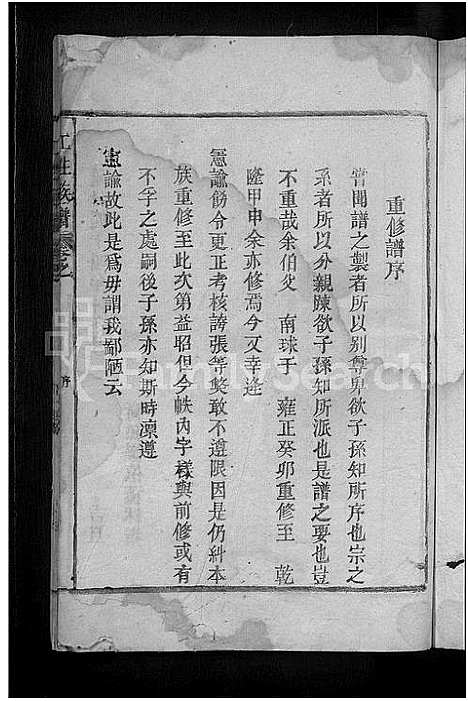 重修譜序
嘗聞譜之製者所以别尊卑欲子孫知所序也宗之
系者所以分親疎欲子孫知所派也是譜之要也豈
不重哉余伯父 南球于 雍正癸卯重修至 乾
隆甲申余亦修焉今又幸逢
憲諭飭令更正考核誇張等獘敢不遵限因是仍糾本
族重修至此次第益昭但今帙內字樣與前修或有
不孚之處嗣後子孫亦知斯時凜遵
憲諭故此是爲毋謂我鄙陋云
族譜 卷之
序
FamilySearch